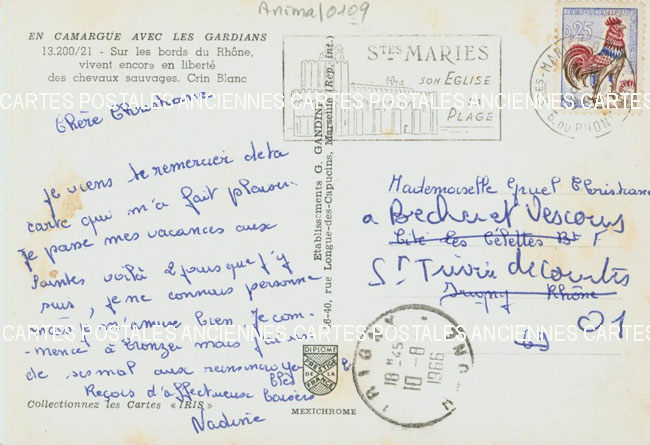 Animal 0109
EN CAMARGUE AVEC LES GARDIANS
13.200/21 - Sur les bords du Rhône,
vivent encore en liberté
des chevaux sauvages. Crin Blanc
Chère Christiane
Je viens te remercier de ta
carte qui m'a fait plaisir
Je passe mes vacances aux
Saintes voilà 2 jours que j'y
suis, je ne connais personne
mais je m'amuse bien Je com-
mence à bronzer mais j'ai
de mal aux
Reçois d'affectueux baisers
Nadine
Collectionnez les Cartes «IRIS»
Etablissements G. GANDINI
36-40, rue Longue-des-Capucins, Marseille (Rep. Int.)
DIPLOME
PRESTIGE
DE LA
FRANCE
MEXICHROME
STES MARIES
SON EGLISE
PLAGE
REPUBLIQUE
0,25
B. DU RHONE
Mademoiselle Gruel Christiane
a Becher et Vescours
Cité les Célettes Bt F
St Trivier de Courtes
Irigny Rhône
01
69
IRIGNY
RHONE
18 H 45
10 - 8
1966
CARTES POSTALES ANCIENNES CARTES POSTALES ANCIENNES CARTES
CARTES POSTALES ANCIENNES CARTES POSTALES ANCIENNES CARTES